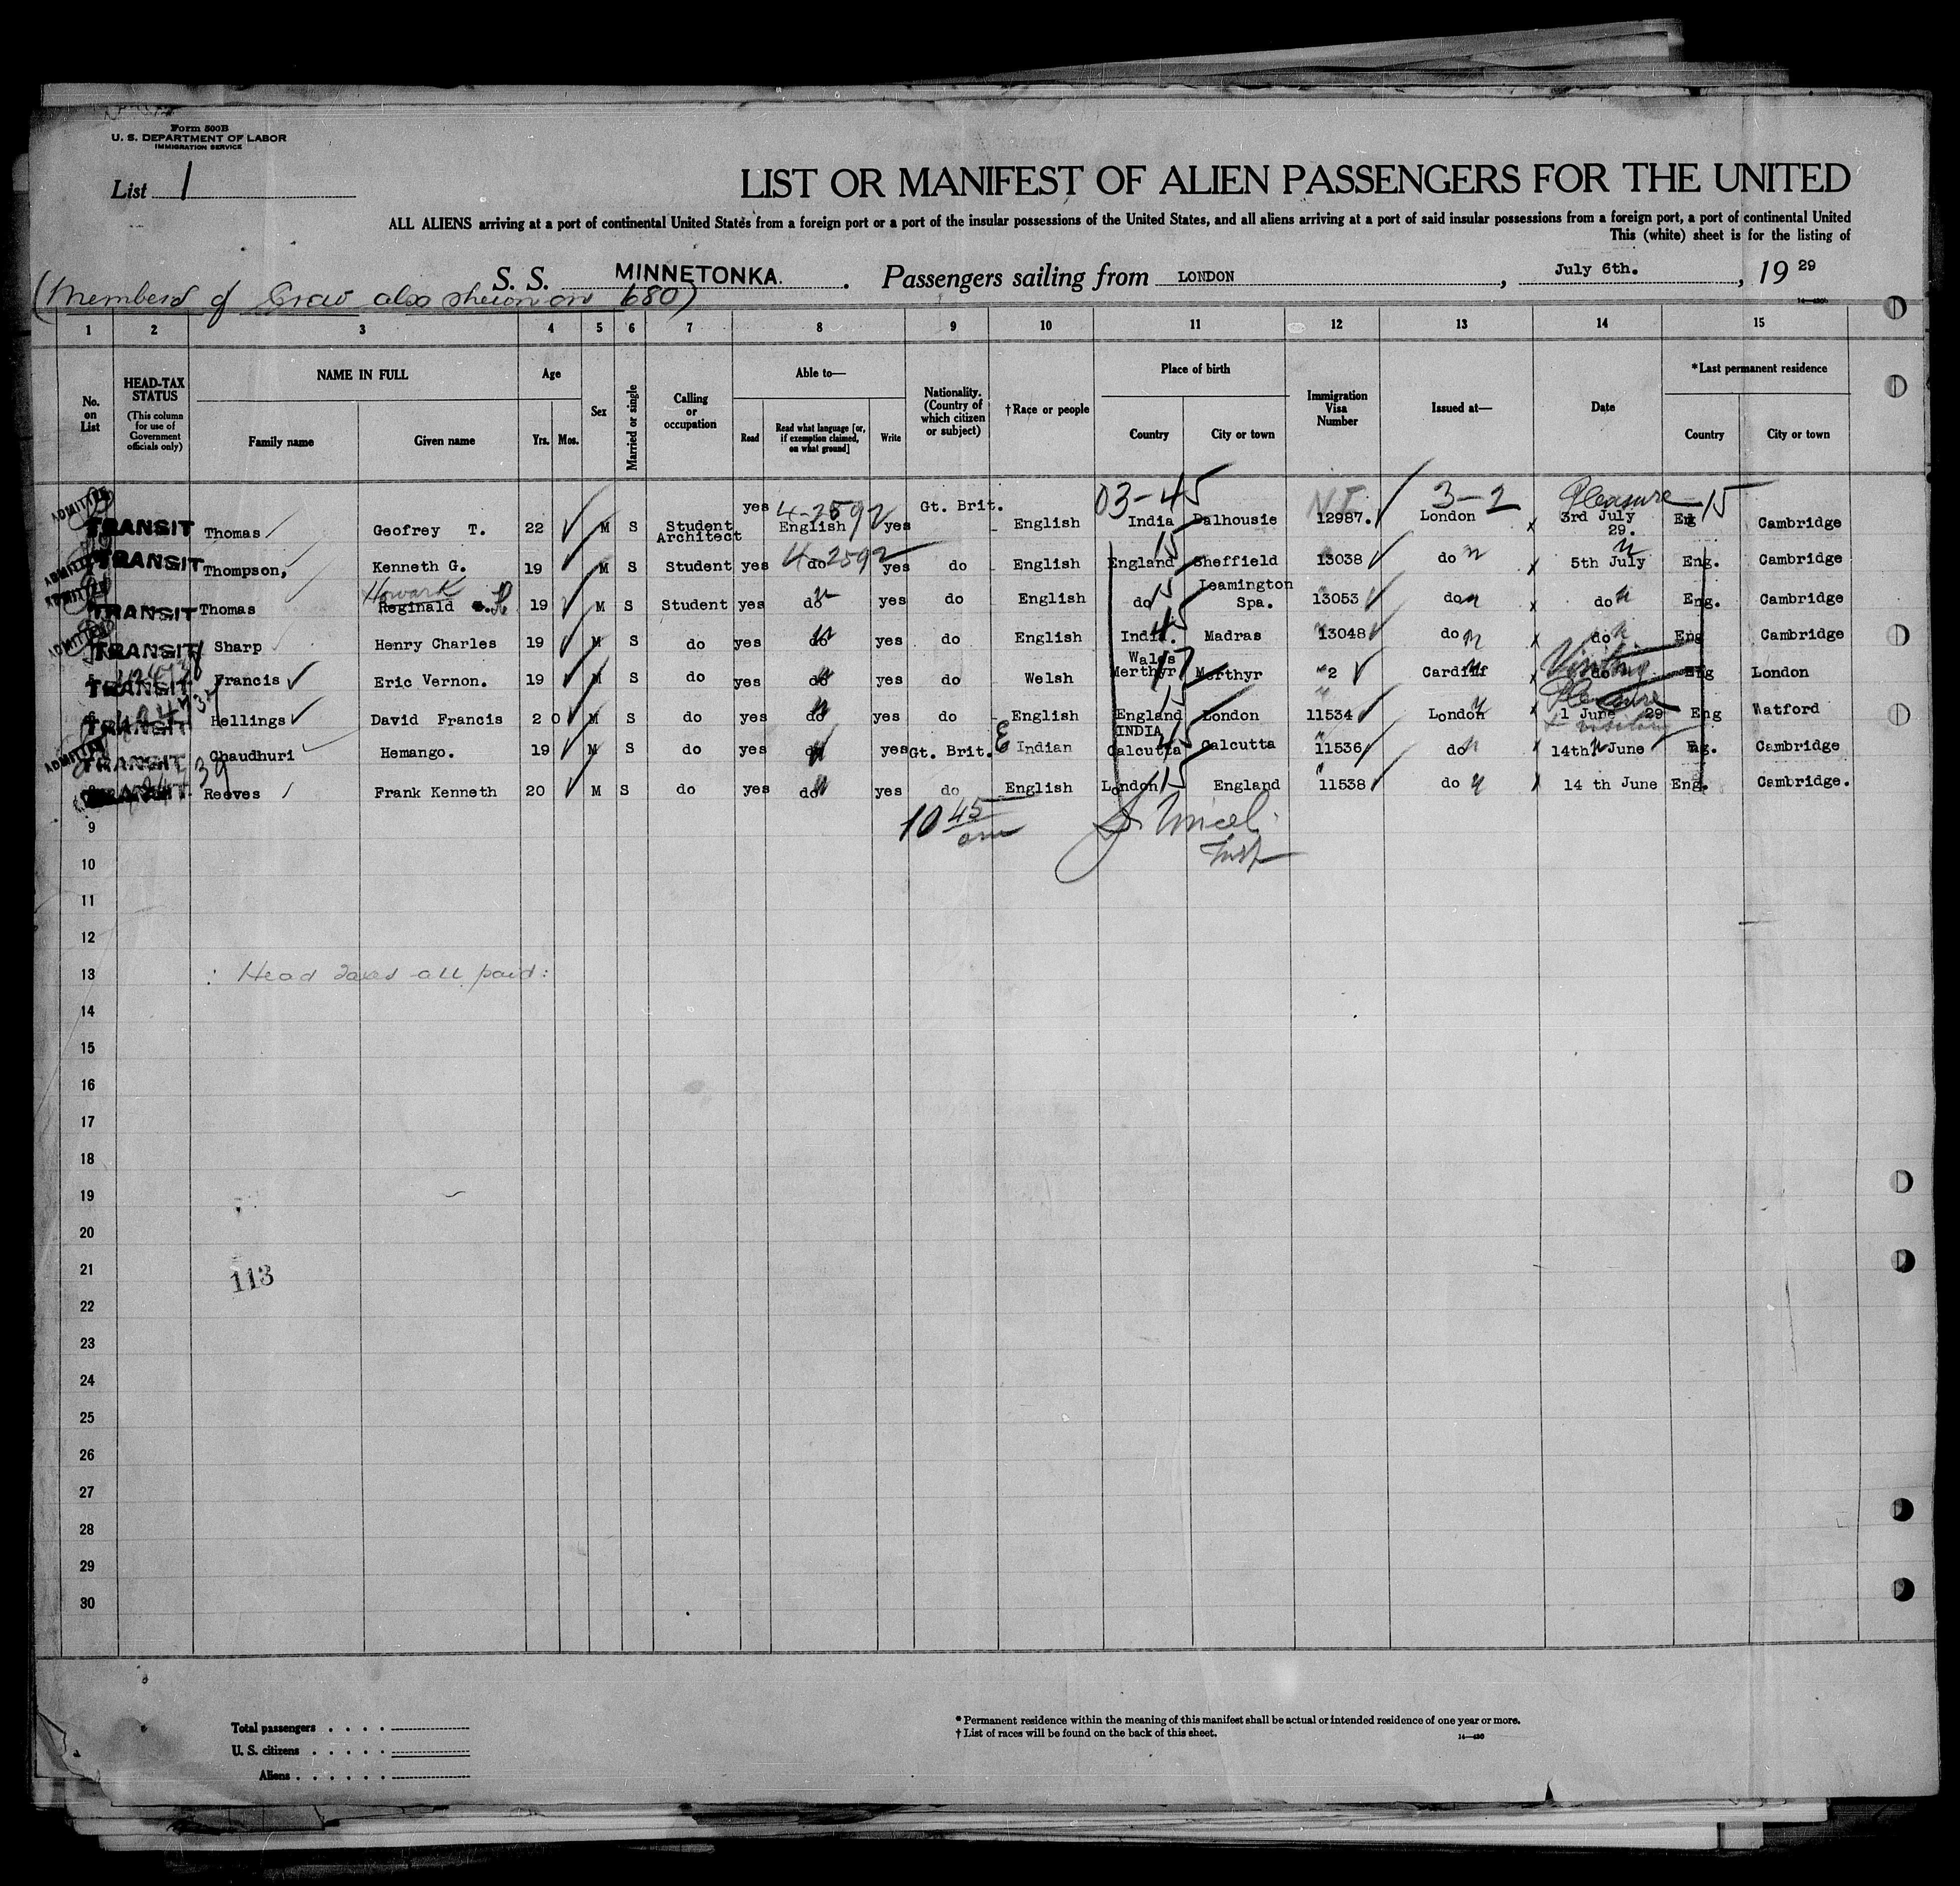 Form 500B
U. S. DEPARTMENT OF LABOR
IMMIGRATION SERVICE
List 1
LIST OR MANIFEST OF ALIEN PASSENGERS FOR THE UNITED
ALL ALIENS arriving at a port of continental United States from a foreign port or a port of the insular possessions of the United States, and all aliens arriving at a port of said insular possessions from a foreign port, a port of continental United
This (white) sheet is for the listing of
S. S. MINNETONKA. Passengers sailing from LONDON, July 6th., 19 29
(Members of Crew also shewn on 680)
1 2 3 4 5 6 7 8 9 10 11 12 13 14 15
No. on List
HEAD-TAX STATUS (This column for use of Government officials only)
NAME IN FULL
Family name Given name
Age
Yrs. Mos.
Sex
Married or single
Calling or occupation
Able to—
Read Read what language [or, if exemption claimed, on what ground] Write
Nationality. (Country of which citizen or subject)
†Race or people
Place of birth
Country City or town
Immigration Visa Number
Issued at—
Date
*Last permanent residence
Country City or town
03-45 3-2 Pleasure 15
ADMITTED TRANSIT Thomas Geofrey T. 22 M S Student Architect yes 4-2592 English yes Gt. Brit. English India Dalhousie 12987. London x 3rd July 29. Eng Cambridge
ADMITTED TRANSIT Thompson, Kenneth G. 19 M S Student yes 4-2592 do yes do English England 15 Sheffield 13038 do x 5th July Eng. Cambridge
ADMITTED TRANSIT Thomas Howark Reginald R 19 M S Student yes do yes do English do 15 Leamington Spa. 13053 do x do Eng. Cambridge
ADMITTED TRANSIT Sharp Henry Charles 19 M S do yes do yes do English India. 45 Madras 13048 do x do Eng Cambridge
TRANSIT Francis Eric Vernon. 19 M S do yes do yes do Welsh Wales Merthyr 17 Merthyr 2 Cardiff x Visiting do Eng London
TRANSIT Hellings David Francis 2 0 M S do yes do yes do English England 15 London 11534 London x Pleasure 1 June 29 Eng Watford
ADMITTED TRANSIT Chaudhuri Hemango. 19 M S do yes do yes Gt. Brit. E Indian INDIA Calcutta 45 Calcutta 11536 do x 14th June Eng. Cambridge
TRANSIT 39 Reeves Frank Kenneth 20 M S do yes do yes do English London 15 England 11538 do x 14 th June Eng. Cambridge.
9
10 45 am
Insp
10
11
12
13 Head taxes all paid:
14
15
16
17
18
19
20
21
113
22
23
24
25
26
27
28
29
30
Total passengers
U. S. citizens
Aliens
* Permanent residence within the meaning of this manifest shall be actual or intended residence of one year or more.
† List of races will be found on the back of this sheet.
14—430